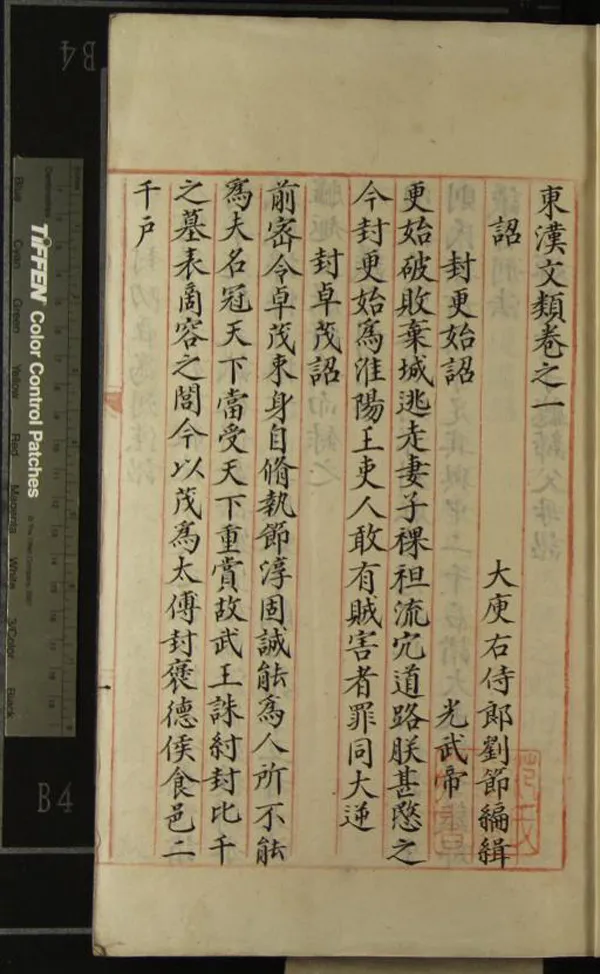 東漢文類卷之一
詔 大庾右侍郎劉節編緝
封更始詔 光武帝
更始破敗棄城逃走妻子裸袒流冗道路朕甚愍之
今封更始爲淮陽王吏人敢有賊害者罪同大逆
封卓茂詔
前密令卓茂束身自脩執節淳固誠能爲人所不能
爲夫名冠天下當受天下重賞故武王誅紂封比干
之墓表商容之閭今以茂爲太傅封褒德侯食邑二
千戶
一
B4
B4
TIFFEN Color Control Patches
Blue Cyan Green Yellow Red Magenta White 3/Color Black